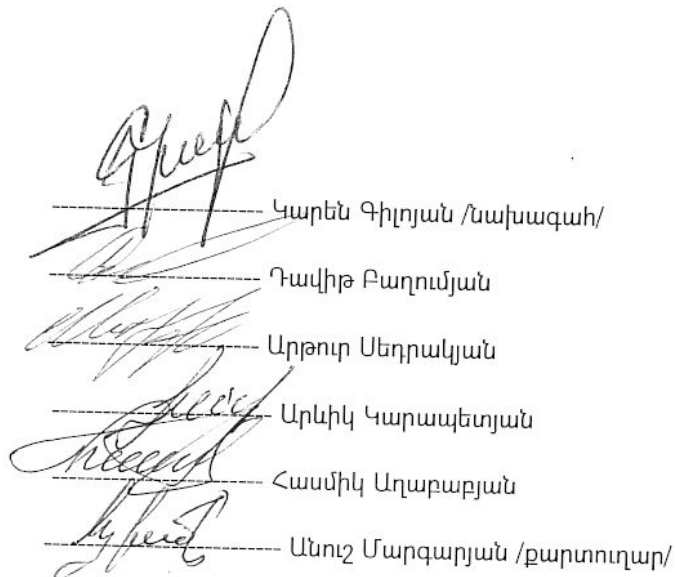 Կարեն Գիլոյան /նախագահ/
Դավիթ Բաղումյան
Արթուր Սեդրակյան
Արևիկ Կարապետյան
Հասմիկ Աղաբաբյան
Անուշ Մարգարյան /քարտուղար/